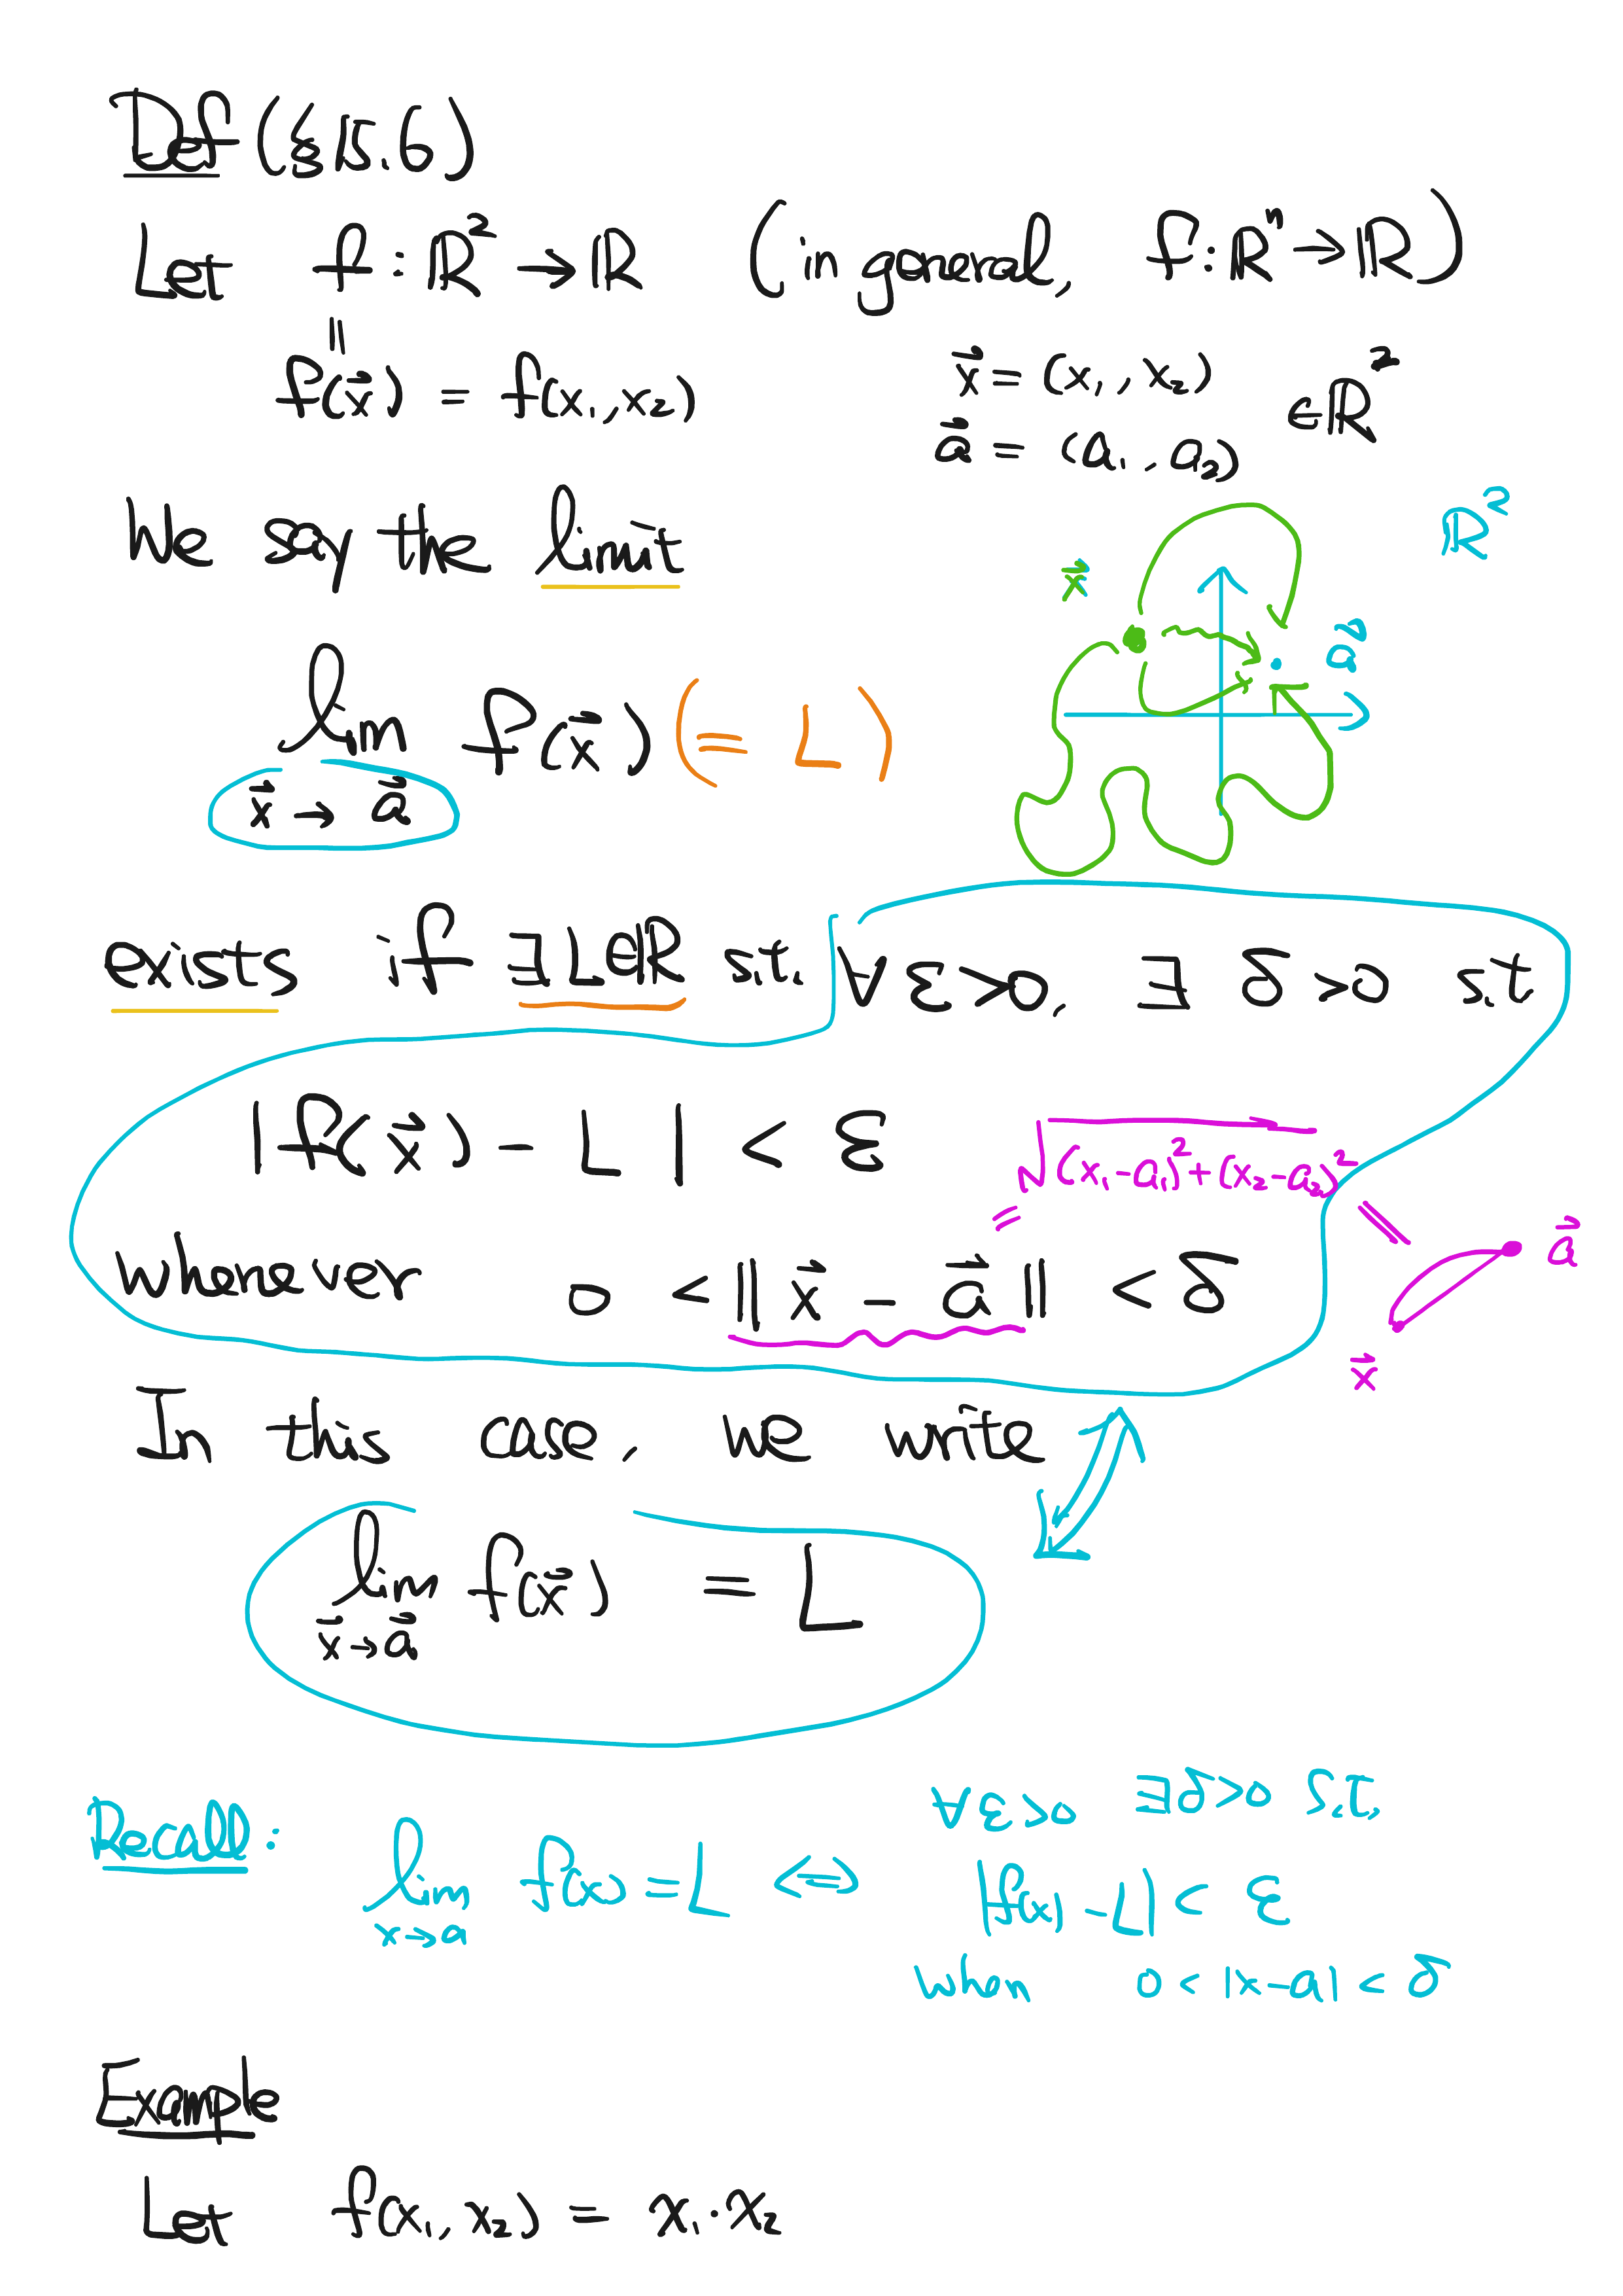 Def (§15.6)
Let f : ℝ² → ℝ (in general, f : ℝⁿ → ℝ)
||
f(x⃗) = f(x₁, x₂)
x⃗ = (x₁, x₂)
a⃗ = (a₁, a₂)
∈ ℝ²
We say the limit
ℝ²
x⃗
a⃗
lim f(x⃗) (= L)
x⃗ → a⃗
exists if ∃ L ∈ ℝ s.t. ∀ ε > 0, ∃ δ > 0 s.t
| f(x⃗) - L | < ε
= √(x₁ - a₁)² + (x₂ - a₂)²
whenever 0 < || x⃗ - a⃗ || < δ
||
a⃗
x⃗
In this case, we write
lim f(x⃗) = L
x⃗ → a⃗
Recall :
lim f(x) = L ⇔
x → a
∀ ε > 0 ∃ δ > 0 s.t.
|f(x) - L| < ε
when 0 < |x - a| < δ
Example
Let f(x₁, x₂) = x₁ · x₂